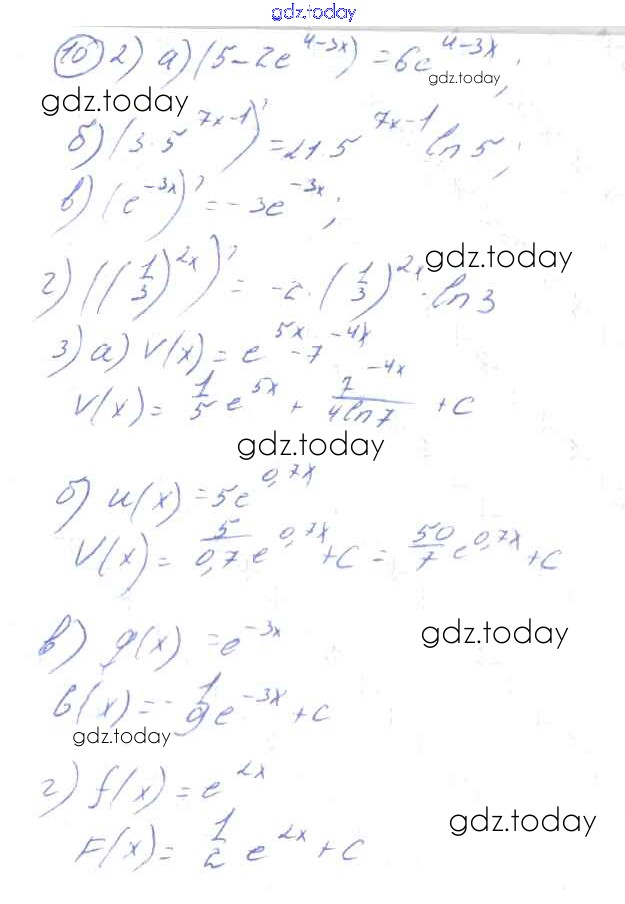 gdz.today
10 2) а) (5-2e^{4-3x}) = 6e^{4-3x};
gdz.today
gdz.today
б) (3·5^{7x-1})' = 21·5^{7x-1} ln5;
в) (e^{-3x})' = -3e^{-3x};
gdz.today
г) ((1/3)^{2x})' = -2·(1/3)^{2x}·ln3
3) а) V(x) = e^{5x} - 7^{-4x}
V(x) = 1/5 e^{5x} + 7^{-4x}/4ln7 + C
gdz.today
б) u(x) = 5e^{0,7x}
V(x) = 5/0,7 e^{0,7x} + C = 50/7 e^{0,7x} + C
gdz.today
в) g(x) = e^{-3x}
b(x) = -1/9 e^{-3x} + C
gdz.today
г) f(x) = e^{2x}
gdz.today
F(x) = 1/2 e^{2x} + C